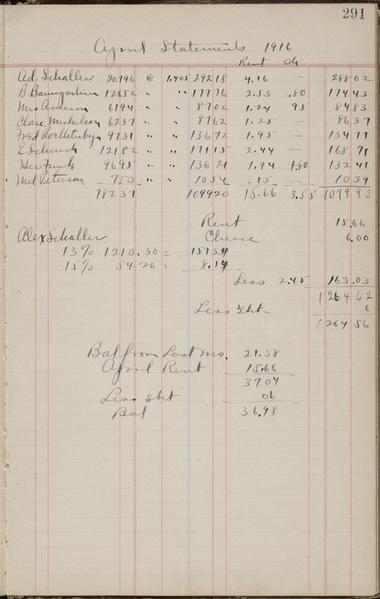 291
April Statements 1916
Rent Ch
Ad. Schaller 20796 @ 1.405 29218 4.16 — 28802
B Baumgartner 12652 " " 17776 2.53 .80 17443
Mrs Anderson 6194 " " 8702 1.24 95 8483
6237 " " 8762 1.25 — 8637
Fred 9731 " " 13672 1.95 — 13477
E Schmidt 12182 " " 17115 2.44 — 16871
Her Funk 9695 " " 13621 1.94 1.80 13241
Peterson 750 " " 1054 .15 — 1039
78237 109920 15.66 3.55 107993
Rent 15.66
Alex Schaller Cheese 6.00
13% 1210.30 = 157.34
15% 54.26 = 8.14
Less 2.45 163.03
126462
Less Sht 6
126456
Bal from Last Mo. 21.38
April Rent 15.66
37.04
Less Sht 06
Bal 36.98